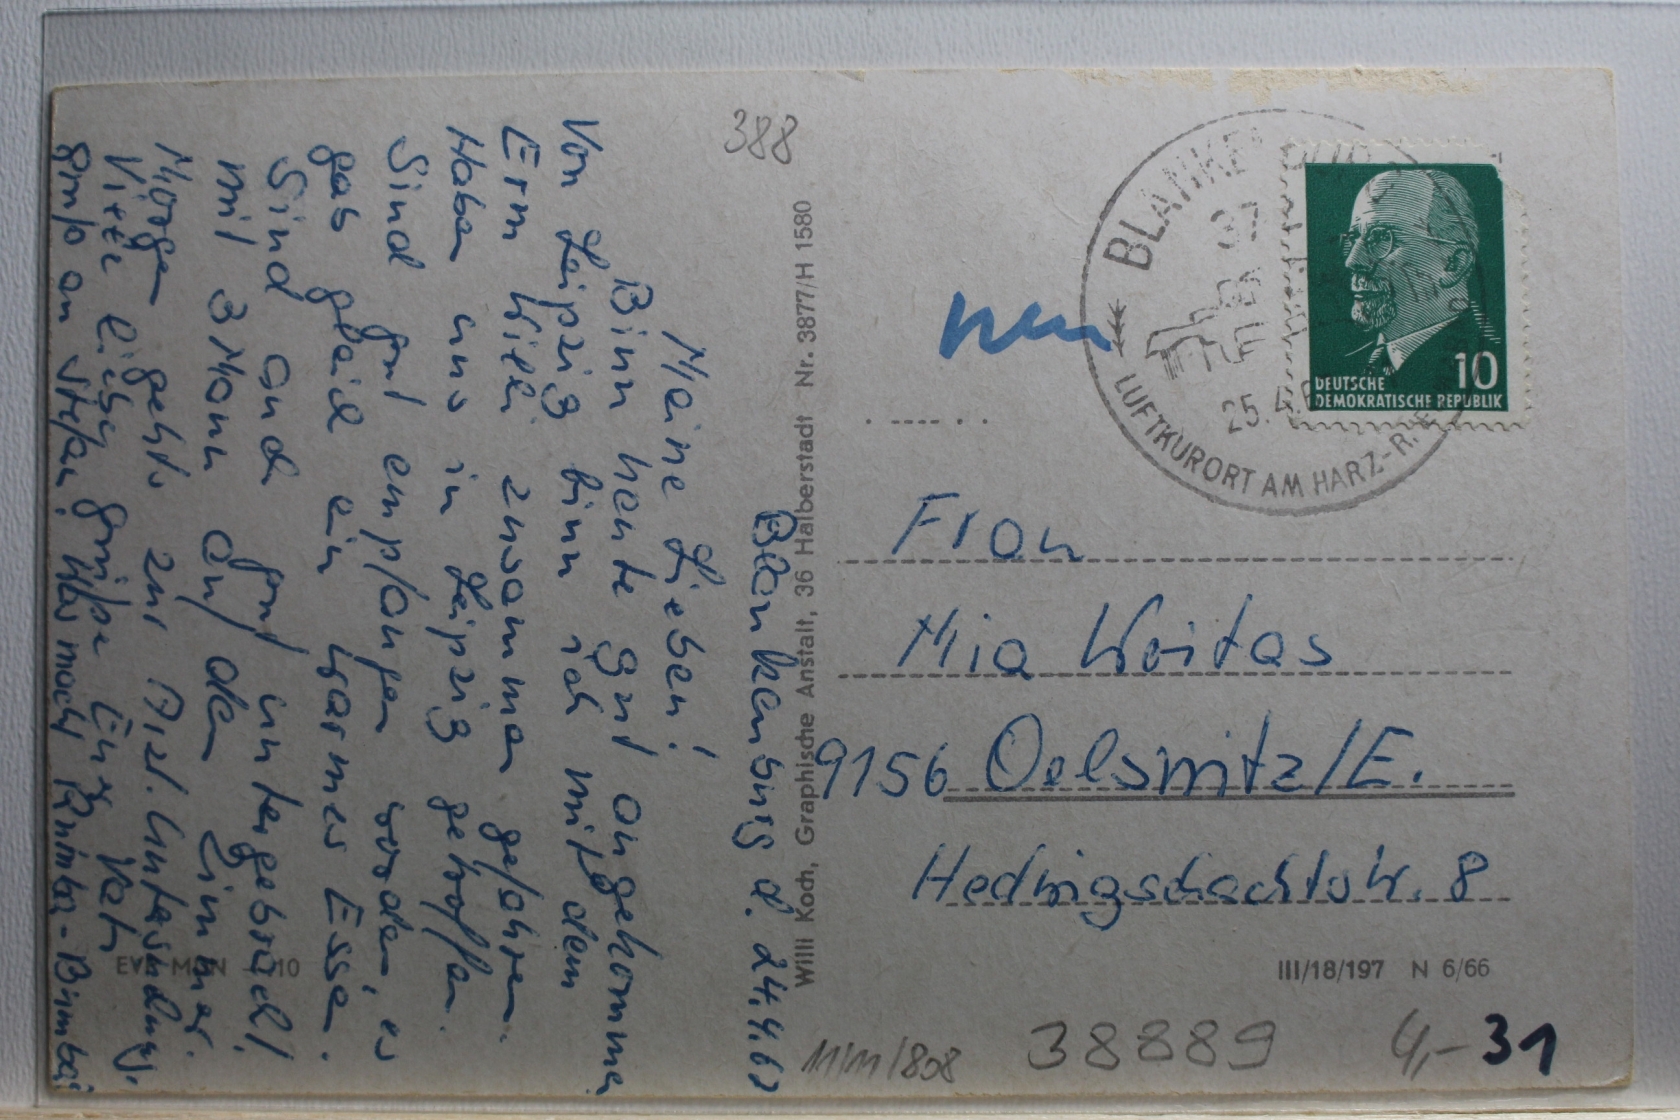 388
Blankenburg d. 24.4.67
Meine Lieben!
Binn heute gut angekommen
Von Leipzig binn ich mit dem
Ern Willi zusammen gefahren.
Haben uns in Leipzig getroffen.
Sind gut empfangen worden, es
gab gleich ein warmes Essen.
Sind auch gut untergebracht,
mit 3 Mann auf den Zimmer.
Morgen gehts zur Arzt. Untersuchung.
Viele liebe grüße Euer Vati
gruß an Stefan! Was macht Rumba-Bimba
Willi Koch, Graphische Anstalt, 36 Halberstadt Nr. 3877/H 1580
BLANKENBURG
37
25.4.
LUFTKURORT AM HARZ
10
DEUTSCHE
DEMOKRATISCHE REPUBLIK
neu
Frau
Mia Woitas
9156 Oelsnitz/E.
Hedwigschachtstr. 8
III/18/197 N 6/66
38889
4,-
31